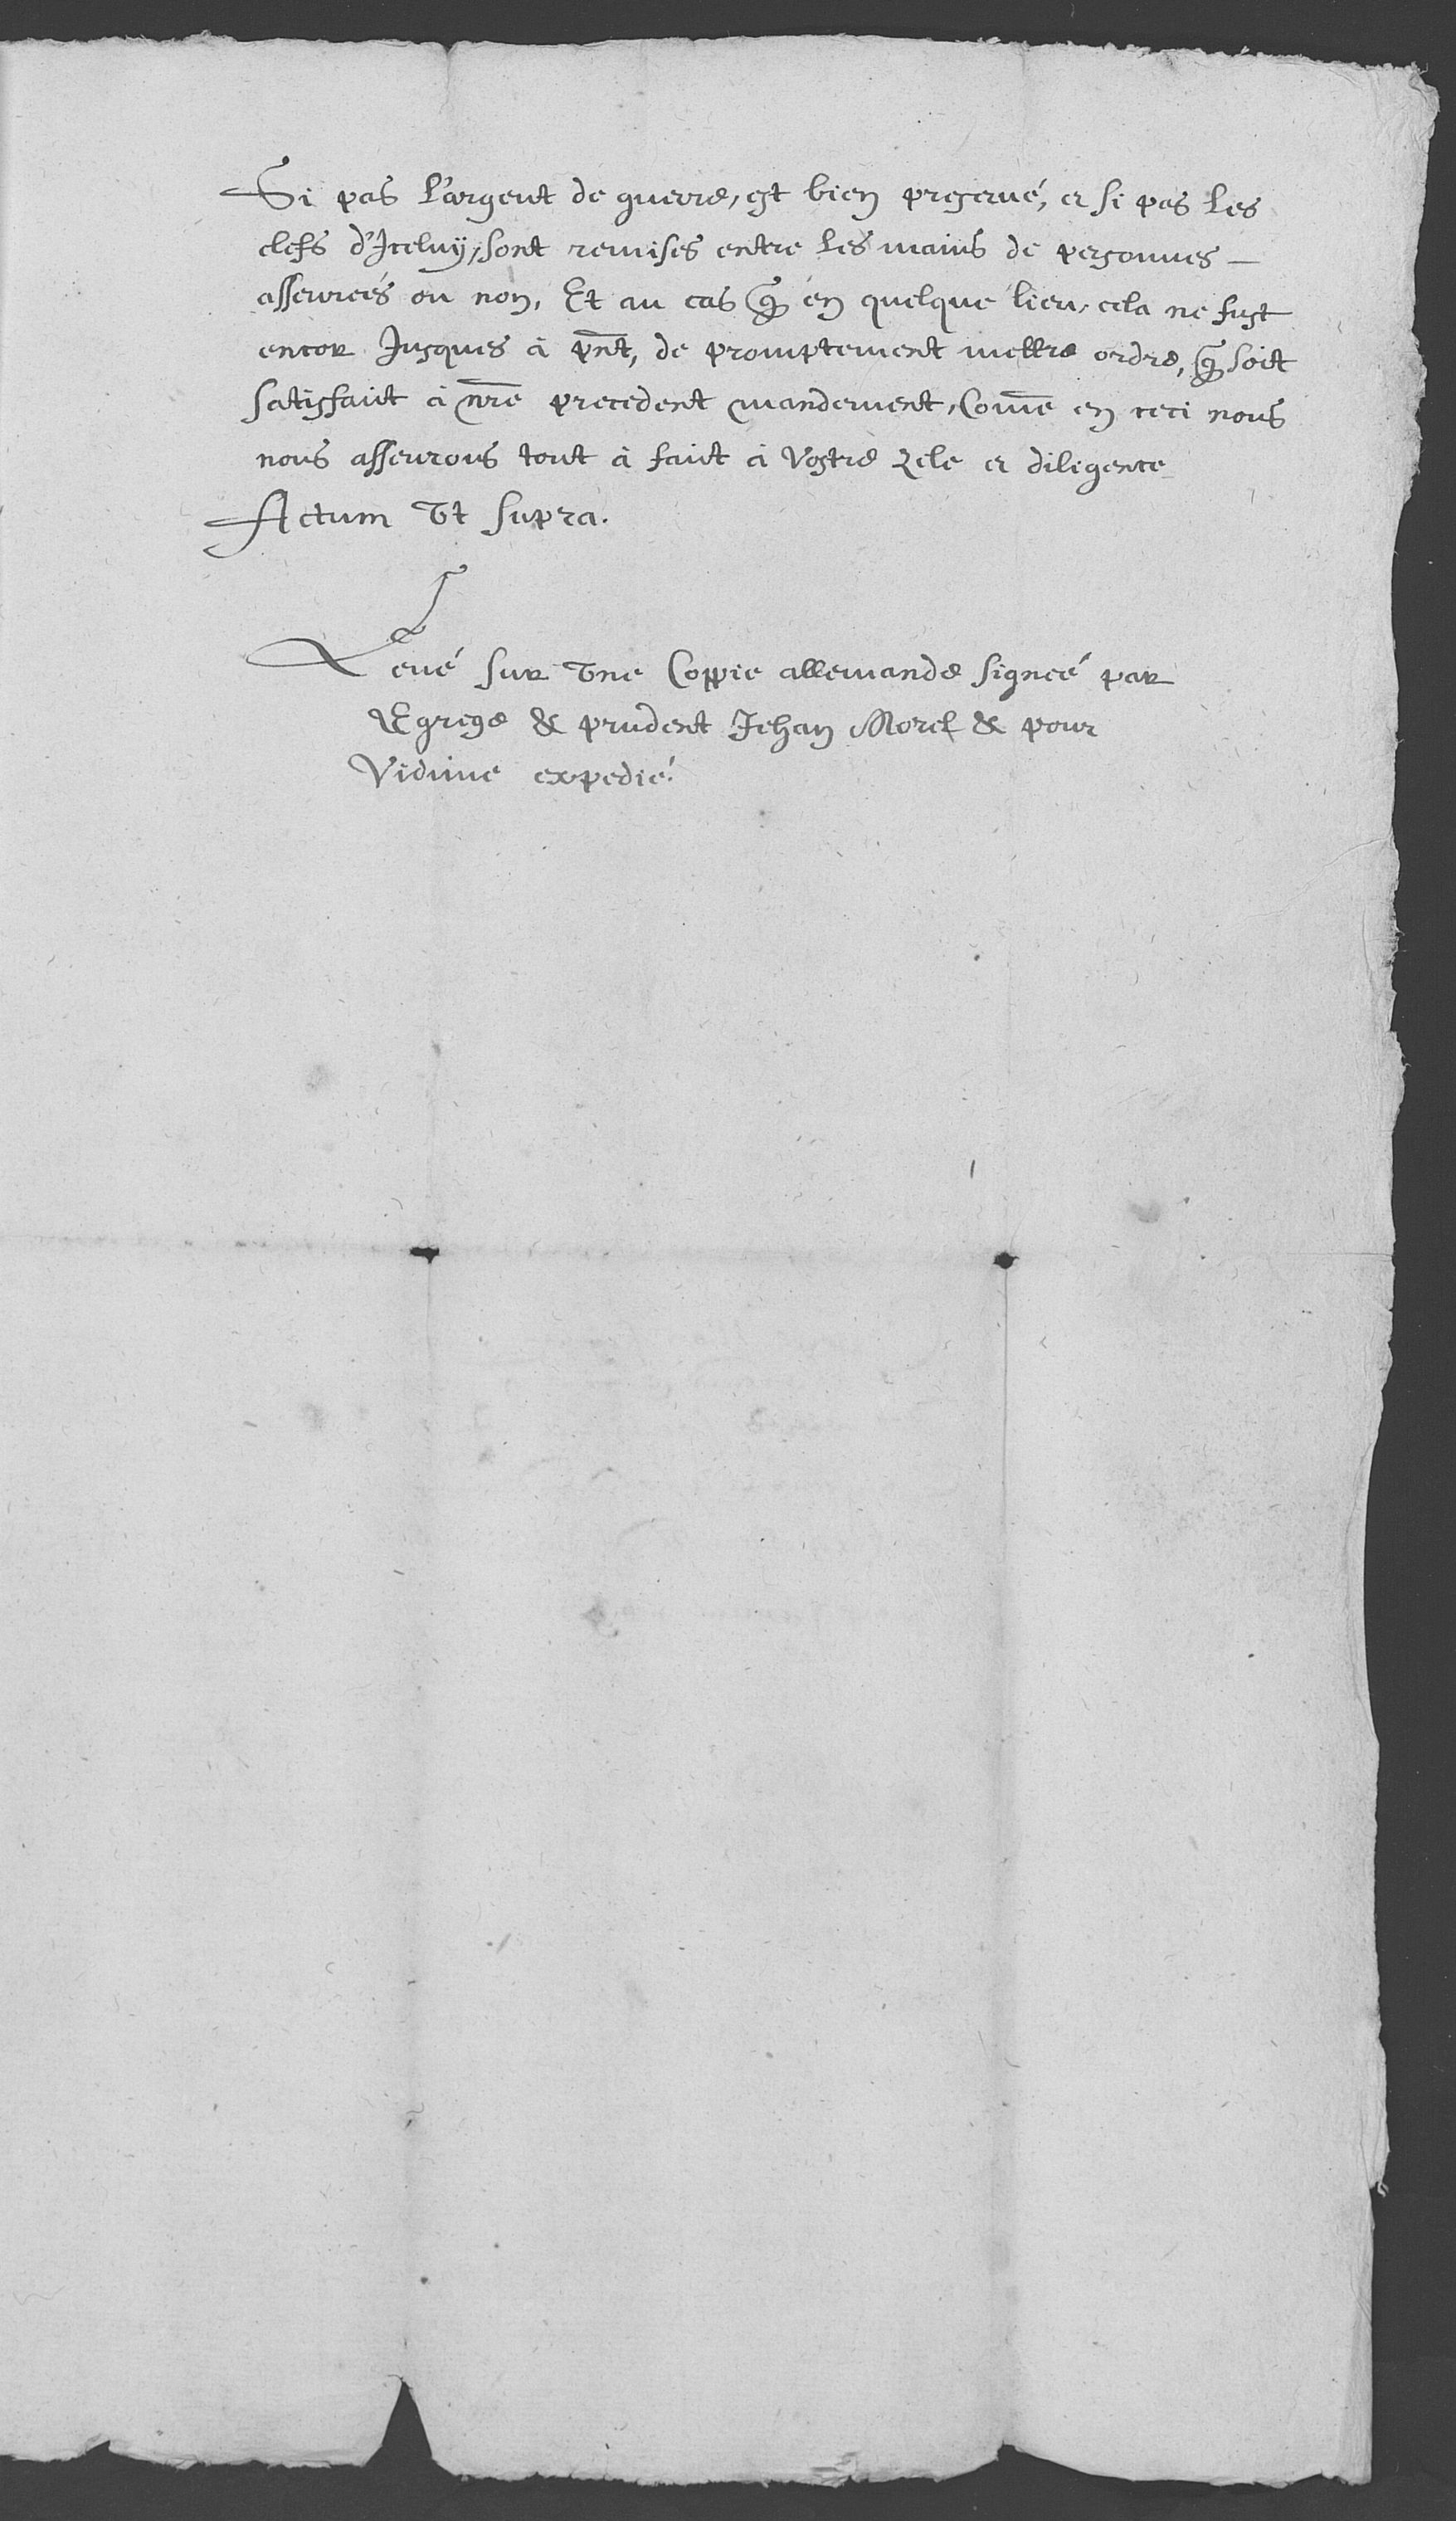 Si pas l'argent de guerre, est bien preservé, et si pas les
clefs d'Iceluÿ, sont remises entre les mains de personnes —
asseurées ou non, Et au cas q̃ en quelque lieu, cela ne fust
encor Jusques à pñt, de promptement mettre ordre, q̃ soit
satisfaict à nr̃e precedent mandement, Com̃e en ceci nous
nous asseurons tout à faict à Vostre zele et diligence
Actum Ut supra.
Levé sur Une Coppie allemande signée par
Egrege & prudent Jehan Morel & pour
Vidime expedié.